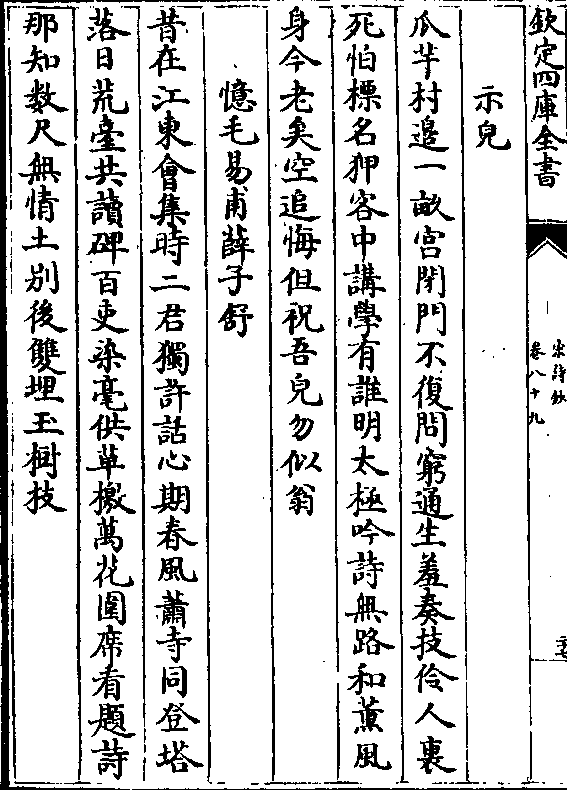 欽定四庫全書
宋詩鈔
卷八十九
示兒
瓜芋村邊一畝宫閉門不復問窮通生羞奏技伶人裏
死怕標名狎客中講學有誰明太極吟詩無路和薰風
身今老矣空追悔但祝吾兒勿似翁
憶毛易甫薛子舒
昔在江東會集時二君獨許話心期春風蕭寺同登塔
落日荒臺共讀碑百吏染毫供草檄萬花圍席看題詩
那知数尺無情土别後雙埋玉樹技